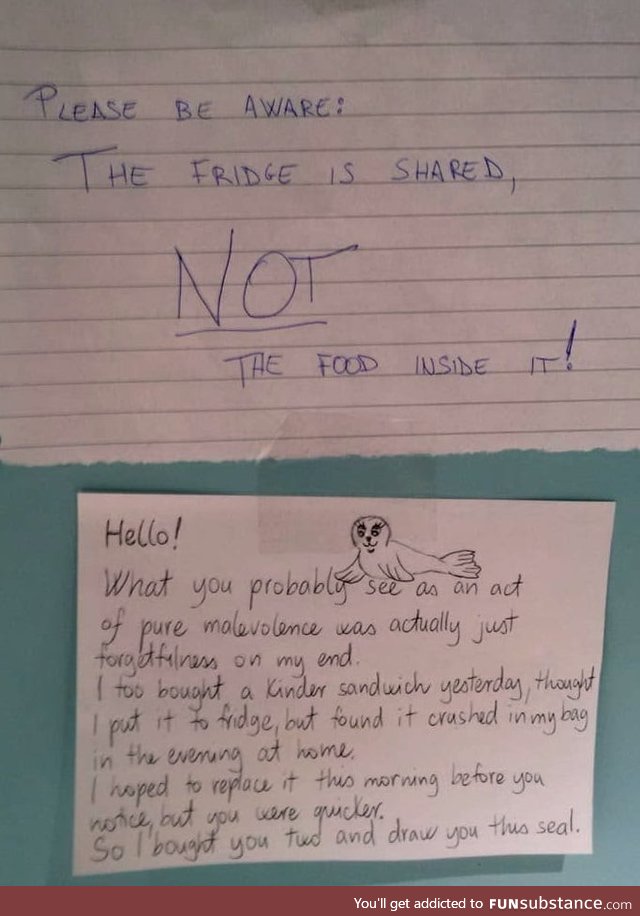 PLEASE BE AWARE:
THE FRIDGE IS SHARED,
NOT
THE FOOD INSIDE IT!
Hello!
What you probably see as an act
of pure malevolence was actually just
forgetfulness on my end.
I too bought a Kinder sandwich yesterday, thought
I put it to fridge, but found it crushed in my bag
in the evening at home.
I hoped to replace it this morning before you
notice, but you were quicker.
So I bought you two and draw you this seal.
You'll get addicted to FUNsubstance.com